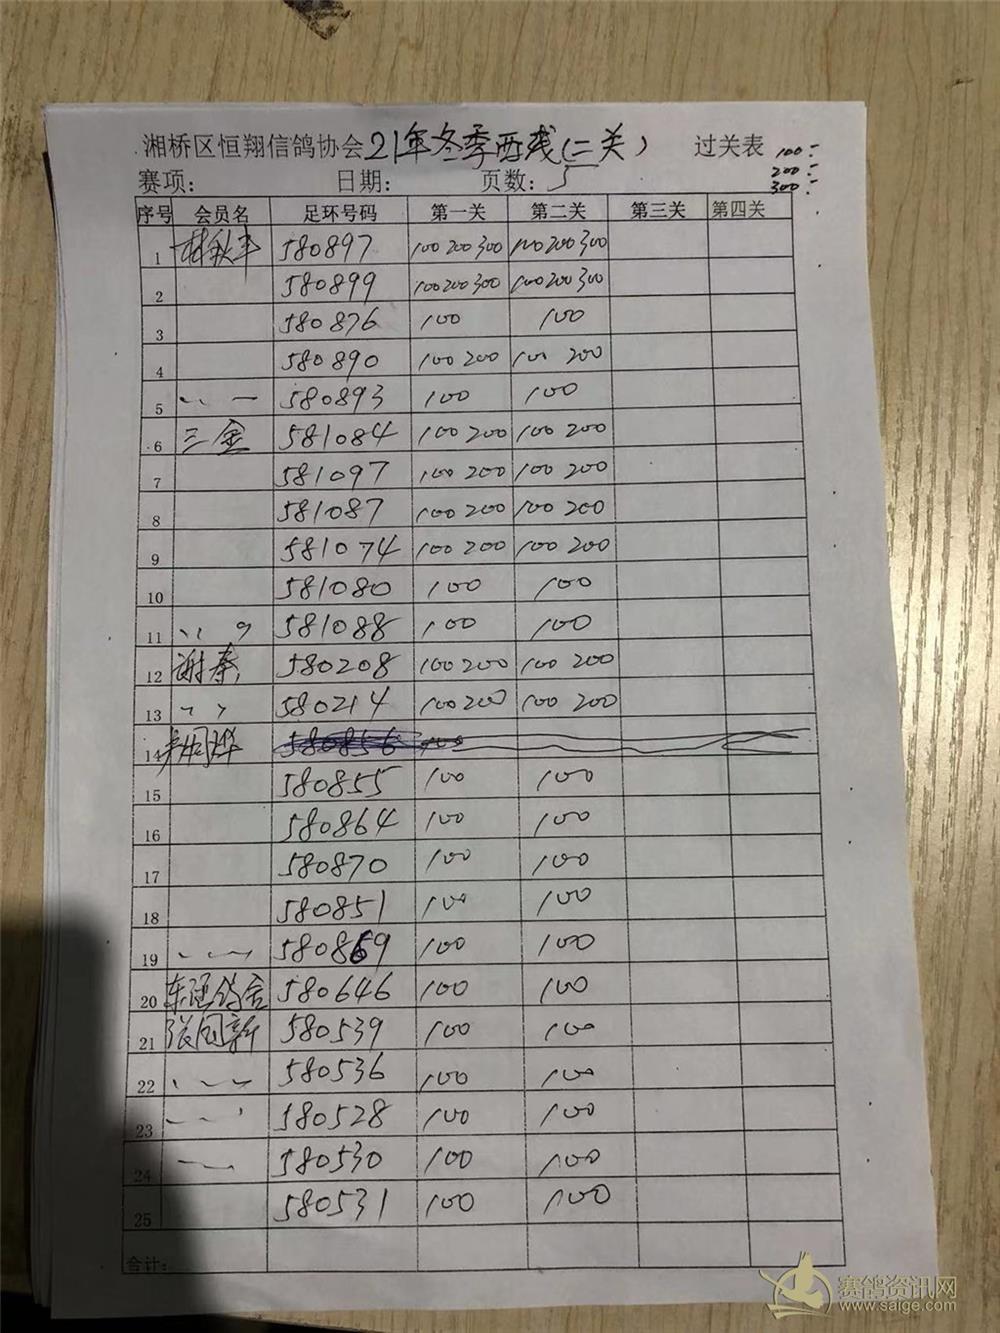 湘桥区恒翔信鸽协会21年冬季两残(二关) 过关表 100:
200:
300:
赛项: 日期: 页数:5
序号 会员名 足环号码 第一关 第二关 第三关 第四关
1 林秋丰 580897 100 200 300 100 200 300
2 580899 100 200 300 100 200 300
3 580876 100 100
4 580890 100 200 100 200
5 580893 100 100
6 三金 581084 100 200 100 200
7 581097 100 200 100 200
8 581087 100 200 100 200
9 581074 100 200 100 200
10 581080 100 100
11 581088 100 100
12 谢泰 580208 100 200 100 200
13 580214 100 200 100 200
14 580856 100
15 580855 100 100
16 580864 100 100
17 580870 100 100
18 580851 100 100
19 580869 100 100
20 580646 100 100
21 580539 100 100
22 580536 100 100
23 580528 100 100
24 580530 100 100
25 580531 100 100
合计:
赛鸽资讯网
www.saige.com